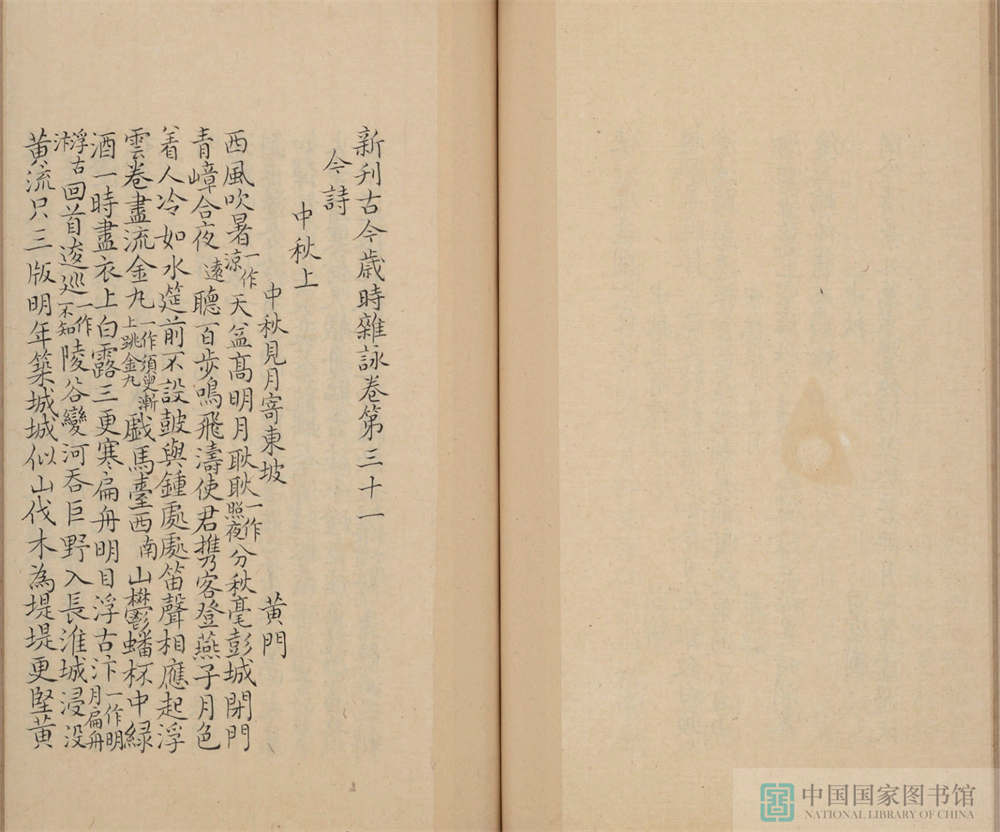 新刋古今歳時雜詠卷第三十一
今詩
中秋上
中秋見月寄東坡 黄門
西風吹暑一作涼天益髙明月耿耿一作照夜分秋毫彭城閉門
青嶂合夜逺聽百步鳴飛濤使君擕客登燕子月色
着人冷如水筵前不設皷與鍾處處笛聲相應起浮
雲卷盡流金丸一作須臾漸上跳金丸戯馬臺西南山欎蟠杯中緑
酒一時盡衣上白露三更寒扁舟明目浮古汴一作明月扁舟
浮古汴回首逡巡一作不知陵谷變河吞巨野入長淮城浸没
黄流只三版明年築城城似山伐木為堤堤更堅黄
中国国家图书馆
NATIONAL LIBRARY OF CHINA